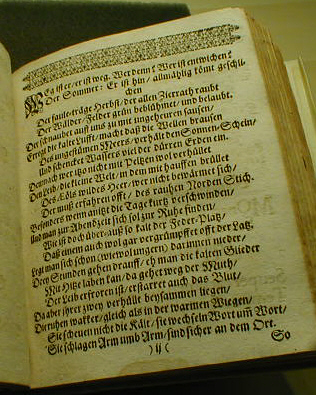 WEg ist er/ er ist weg. Wer denn? Wer ist entwichen?
Der Sommer: Er ist hin/ allmählig kömt geschli-
chen
Der faule/träge Herbst/ der allen Zierrath raubt
Der Wälder/ Felder grün beblühmet/ und belaubt.
Der schnaubet auff uns zu mit ungeheuren sausen/
Erregt die kalte Lufft/ macht daß die Wellen brausen
Des ungestümen Meers/ verhält den Sonnen-Schein/
Und schencket Wassers viel der dürren Erden ein.
Dennach wer itzo nicht mit Peltzen wol verhüllet
Den Leib/ die kleine Welt/ in dem mit hauffen brüllet
Des Æols wildes Heer/ wer nicht bewärmet sich/
Der muß erfahren offt/ des rauhen Norden Stich.
Besonders wenn anitzt die Tage kurtz verschwinden/
Und man zur Abendzeit sich sol zur Ruhe finden/
Wie ist doch über-auß so kalt der Feder-Platz/
Daß einem auch wol gar vergrümpffet offt der Latz.
Legt man sich schon (wie wol ungern) darinnen nieder/
Drey Stunden gehen drauff/ eh man die kalten Glieder
Mit Hitze laben kan/ da gehet weg der Muth/
Der Leib erfroren ist/ erstarret auch das Blut/
Da aber ihrer zwey verhüllt beysammen liegen/
Die ruhen wakker/ gleich als in der warmen Wiegen/
Sie scheuen nicht die Kält/ sie wechseln Wort um Wort/
Sie schlagen Arm umb Arm/ sind sicher an dem Ort.
)( ij (
So